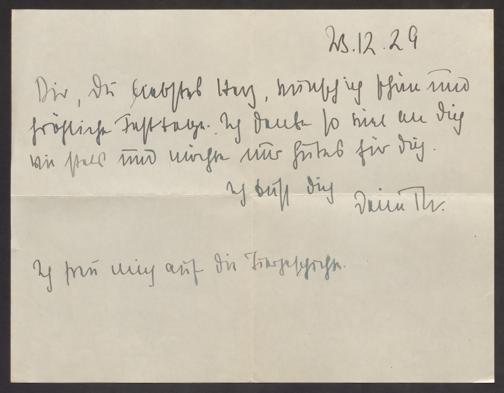 23.12.29
Dir, Du liebstes Herz, wünsch ich schöne und
fröhliche Festtage. Ich denke so viel an Dich
wie stets und möchte nur Gutes für Dich.
Ich küss Dich
Dein Th.
Ich freu mich auf die Tiergeschichte.